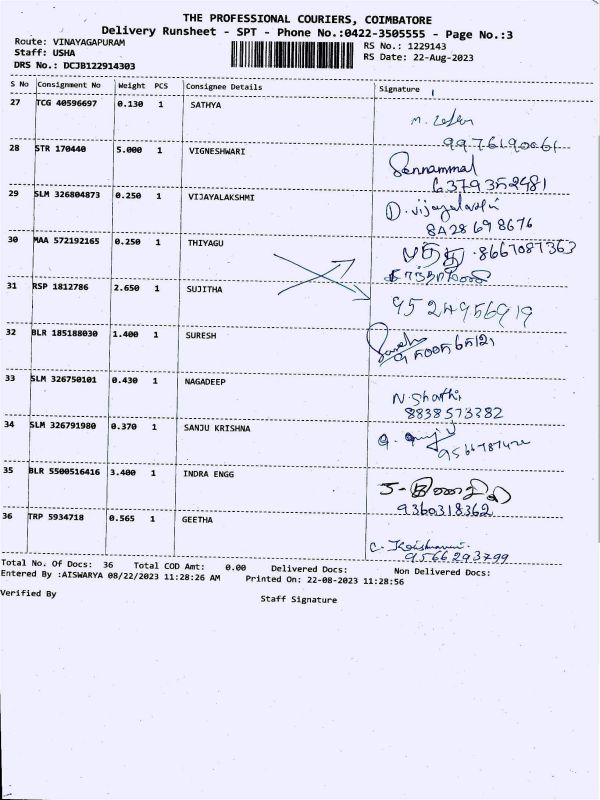 THE PROFESSIONAL COURIERS, COIMBATORE
Delivery Runsheet - SPT - Phone No.:0422-3505555 - Page No.:3
Route: VINAYAGAPURAM
Staff: USHA
DRS No.: DCJB122914303
RS No.: 1229143
RS Date: 22-Aug-2023
S No Consignment No Weight PCS Consignee Details Signature
27 TCG 40596697 0.130 1 SATHYA
9976190061
28 STR 170440 5.000 1 VIGNESHWARI
Sennammal
6379352481
29 SLM 326804873 0.250 1 VIJAYALAKSHMI
D. Vijayalakshmi
8428698676
30 MAA 572192165 0.250 1 THIYAGU
8667087363
31 RSP 1812786 2.650 1 SUJITHA
9524956919
32 BLR 185188030 1.400 1 SURESH
33 SLM 326750101 0.430 1 NAGADEEP
N. Shathi
8838573382
34 SLM 326791980 0.370 1 SANJU KRISHNA
35 BLR 5500516416 3.400 1 INDRA ENGG
9360318362
36 TRP 5934718 0.565 1 GEETHA
9566293799
Total No. Of Docs: 36 Total COD Amt: 0.00 Delivered Docs: Non Delivered Docs:
Entered By :AISWARYA 08/22/2023 11:28:26 AM Printed On: 22-08-2023 11:28:56
Verified By
Staff Signature